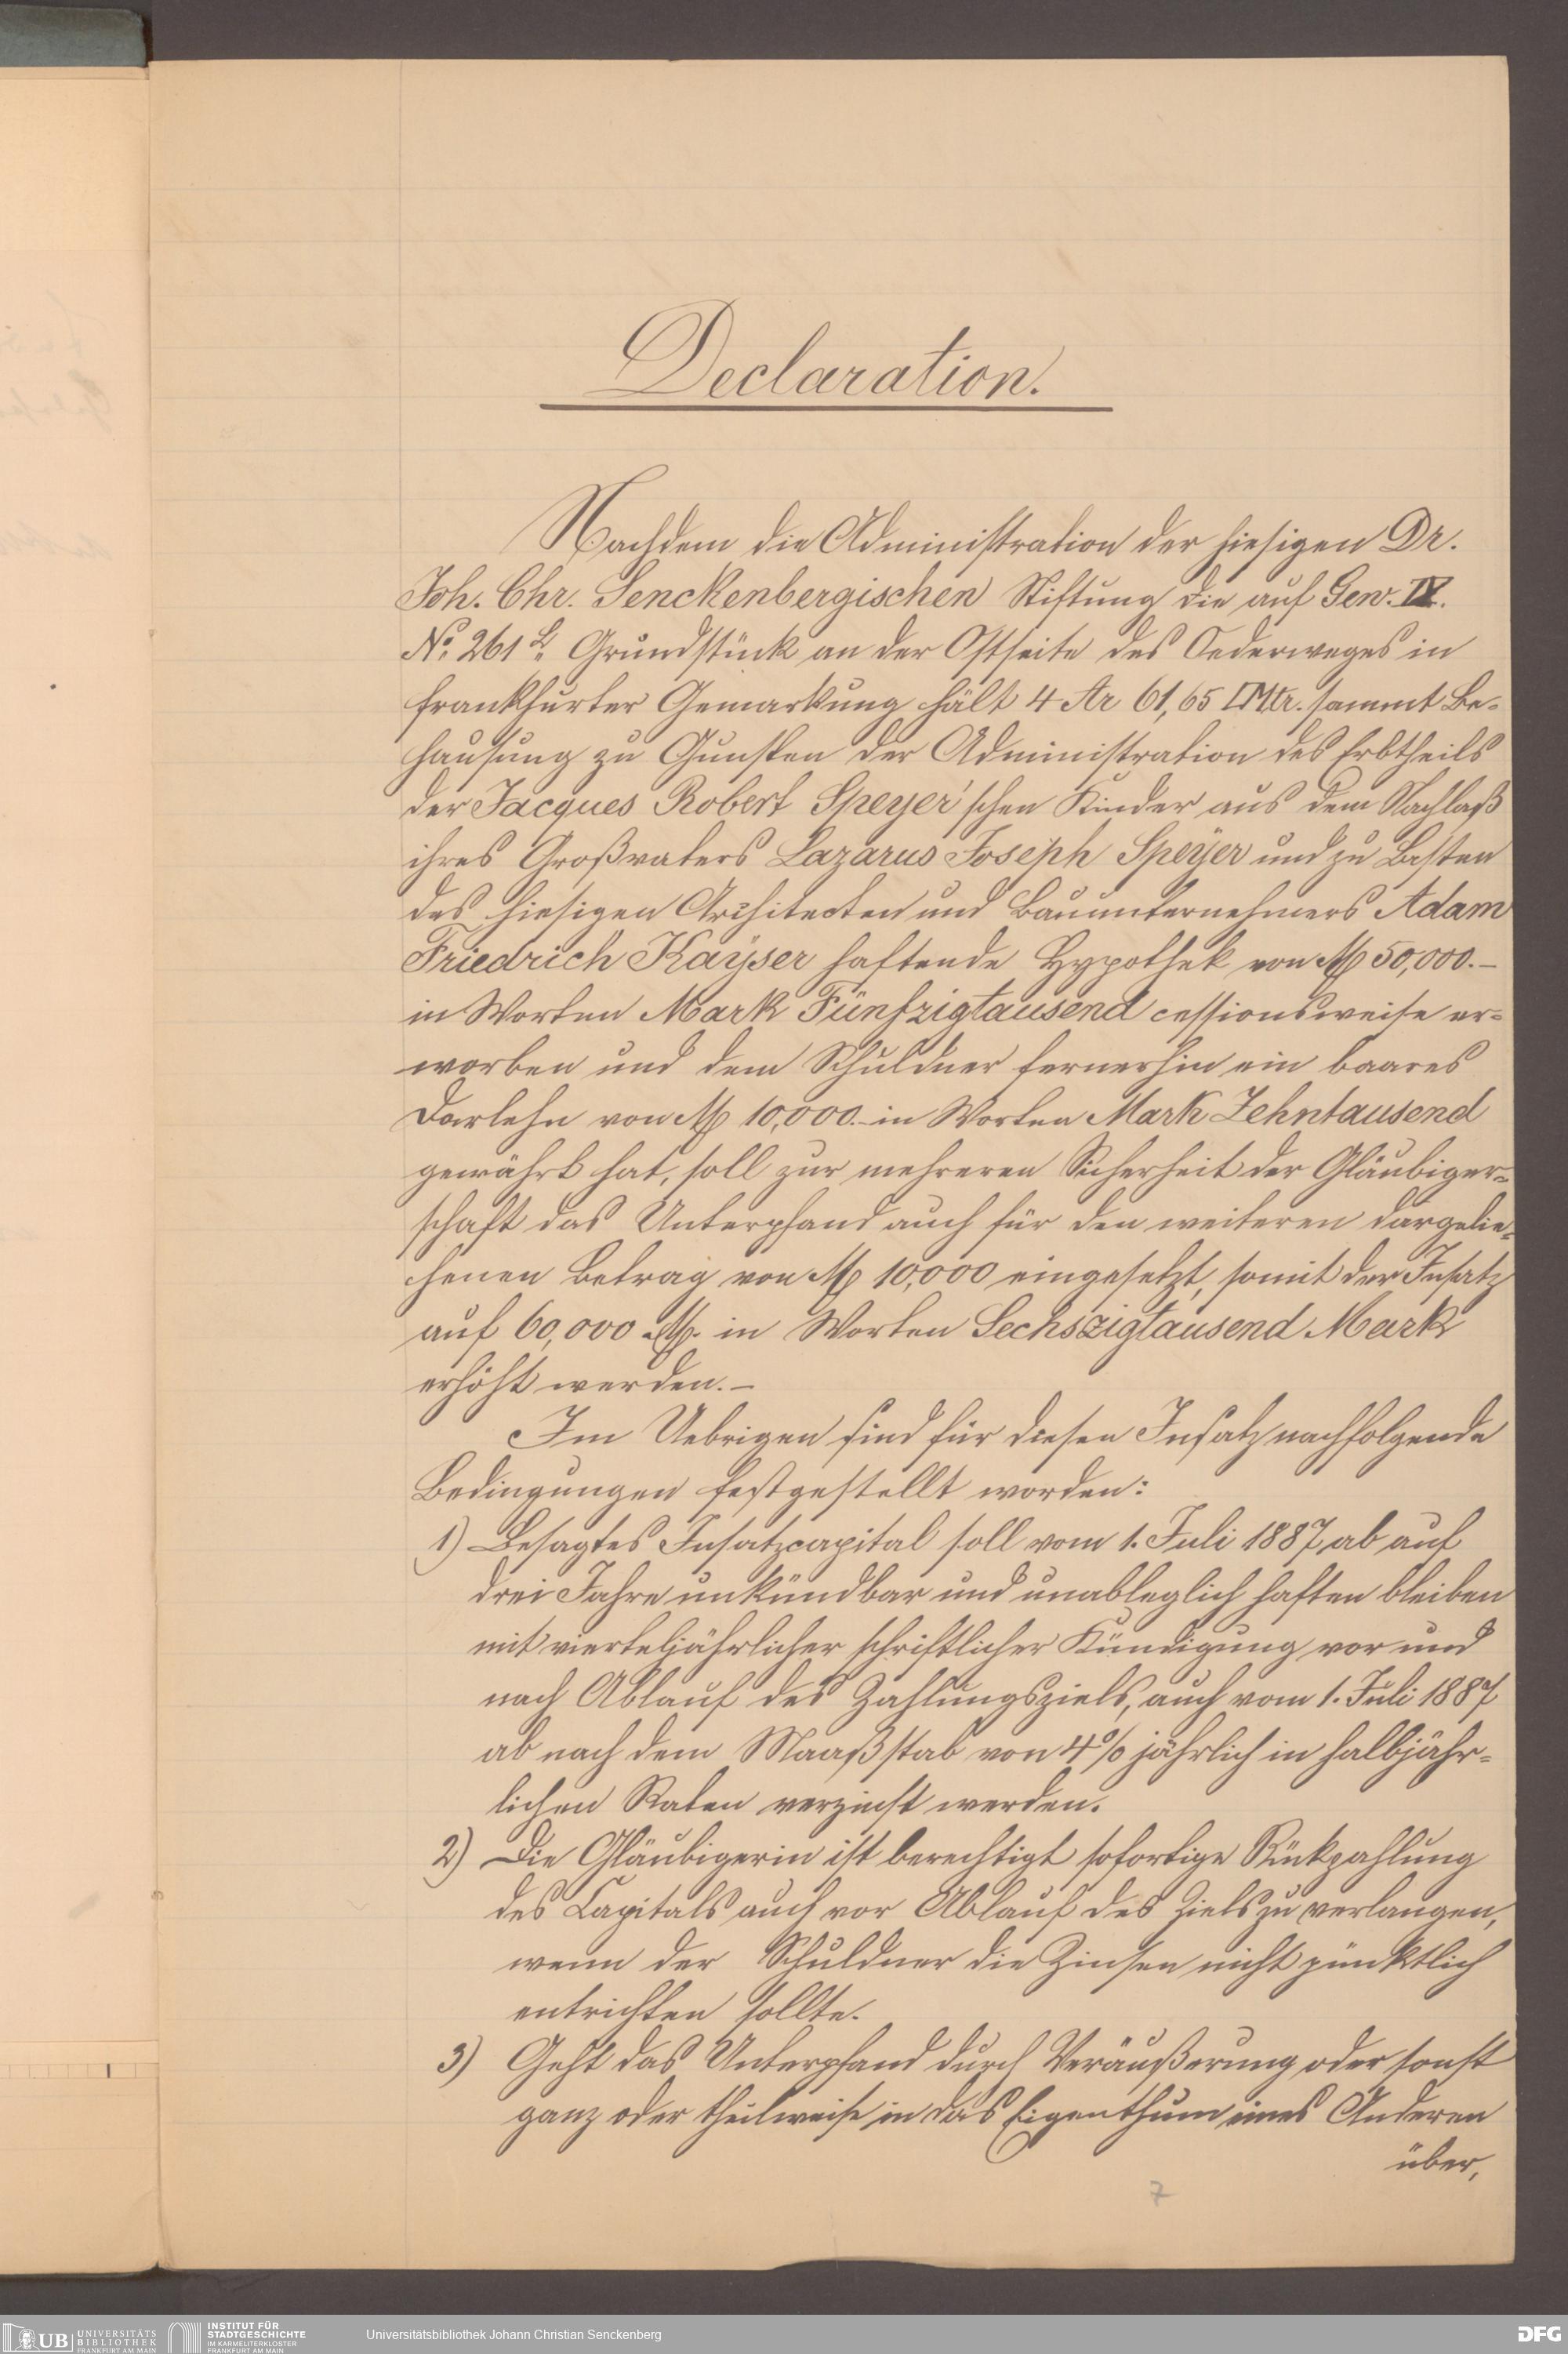 Declaration.
Nachdem die Administration der hiesigen Dr.
Joh. Chr. Senckenbergischen Stiftung die auf Gew. IV.
No. 261 Grundstück an der Ostseite des Oederweges in
Frankfurter Gemarkung hält 4 Ar 61,65 □Mtr. sammt Be-
hausung zu Gunsten der Administration des Erbtheils
der Jacques Robert Speyer'schen Kinder aus dem Nachlaß
ihres Großvaters Lazarus Joseph Speyer und zu Lasten
des hiesigen Architecten und Bauunternehmers Adam
Friedrich Kayser haftende Hypothek von M 50,000.–
in Worten Mark Fünfzigtausend cessionsweise er-
worben und dem Schuldner fernerhin ein baares
Darlehn von M 10,000.– in Worten Mark Zehntausend
gewährt hat, soll zur mehreren Sicherheit der Gläubiger-
schaft das Unterpfand auch für den weiteren dargelie-
henen Betrag von M 10,000 eingesetzt, somit der Insatz
auf 60,000 M. in Worten Sechszigtausend Mark
erhöht werden.–
Im Uebrigen sind für diesen Insatz nachfolgende
Bedingungen festgestellt worden:
1) Besagtes Insatzcapital soll vom 1. Juli 1887 ab auf
drei Jahre unkündbar und unableglich haften bleiben
mit vierteljährlicher schriftlicher Kündigung vor und
nach Ablauf des Zahlungsziels, auch vom 1. Juli 1887
ab nach dem Maaßstab von 4% jährlich in halbjähr-
lichen Raten verzinst werden.
2) Die Gläubigerin ist berechtigt sofortige Rückzahlung
des Capitals auch vor Ablauf des Ziels zu verlangen,
wenn der Schuldner die Zinsen nicht pünktlich
entrichten sollte.
3) Geht das Unterpfand durch Veräußerung oder sonst
ganz oder theilweise in das Eigenthum eines Anderen
über,
7
UB UNIVERSITÄTS
BIBLIOTHEK
FRANKFURT AM MAIN
INSTITUT FÜR
STADTGESCHICHTE
IM KARMELITERKLOSTER
FRANKFURT AM MAIN
Universitätsbibliothek Johann Christian Senckenberg
DFG